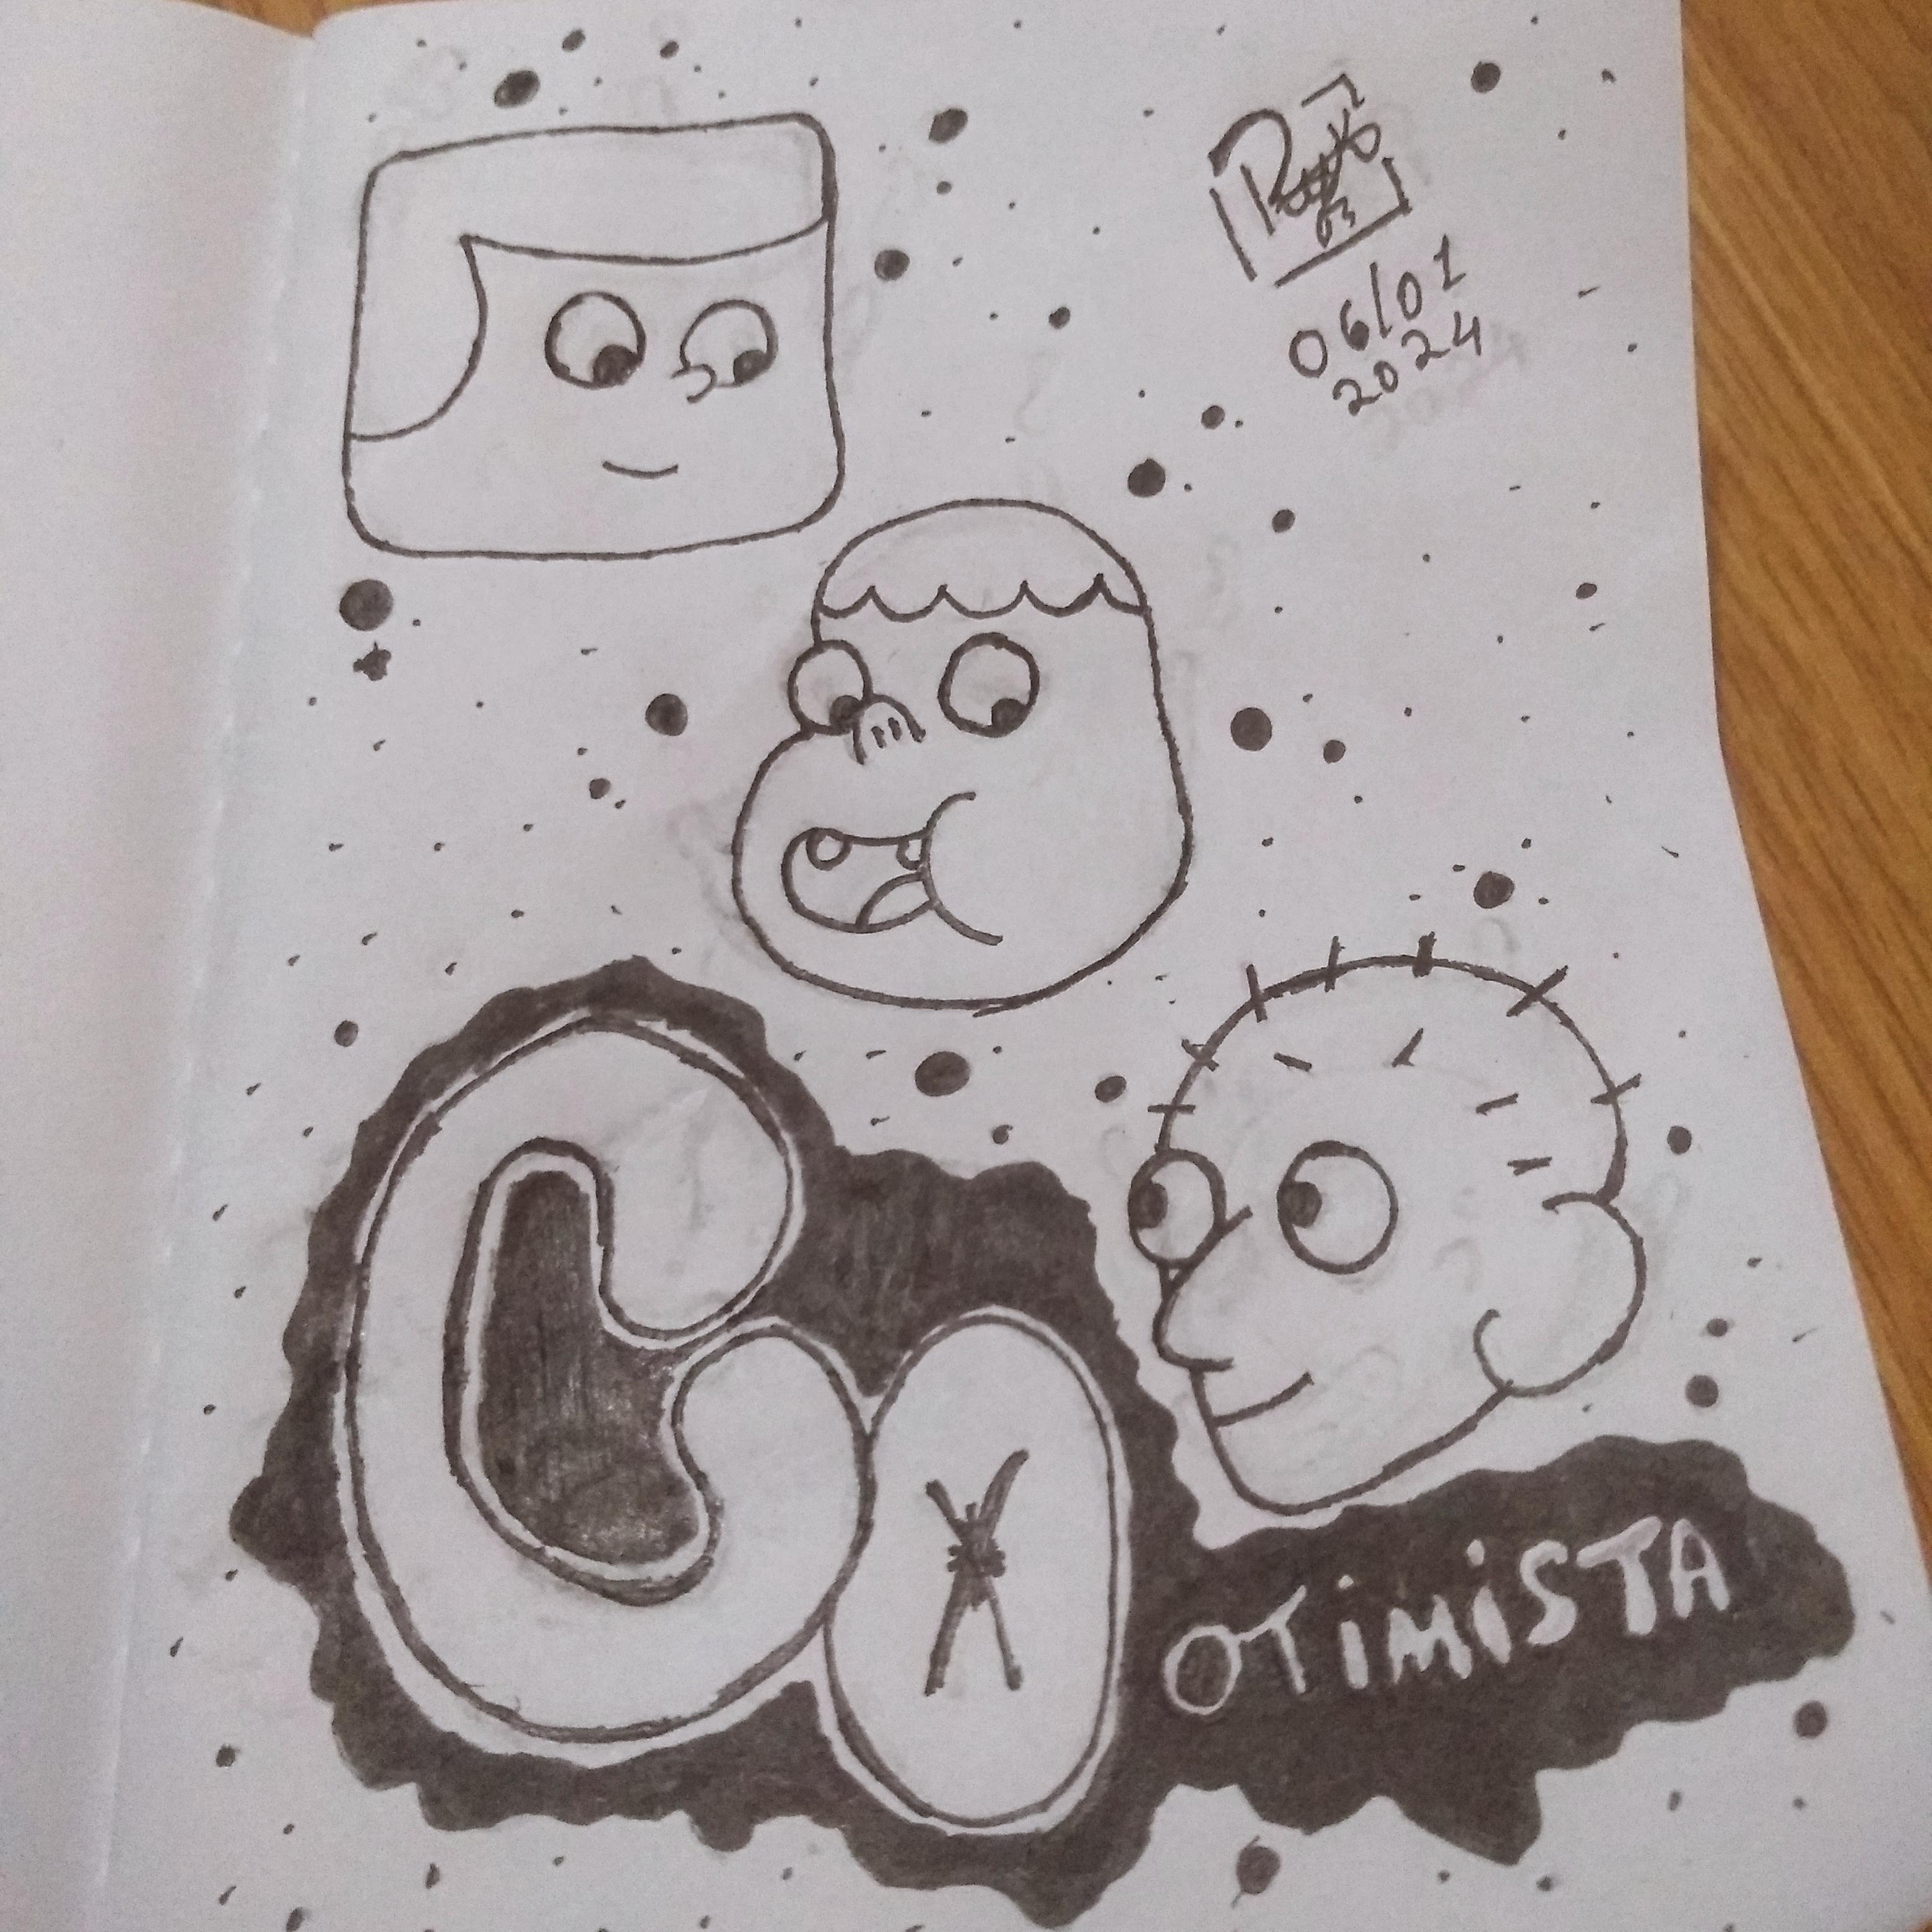 06/01
2024
CO
OTIMISTA